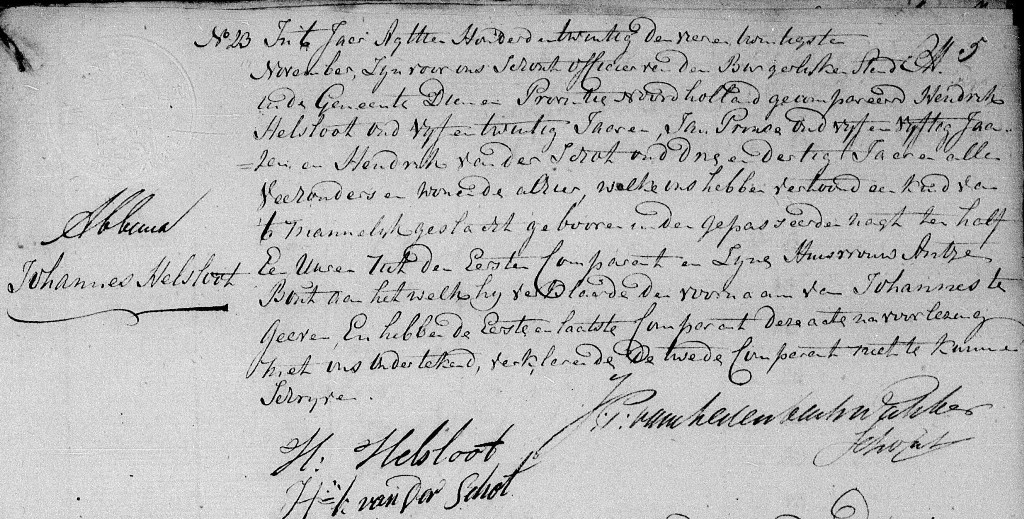 No 23 In't Jaar Agttien Honderd en twintig den vier en twintigste
November, Zyn voor ons Schout officier van den Burgerlyken Stand
in de Gemeente Diemen Provintie Noordholland gecompareerd Hendrik
Helsloot oud vyf en twintig Jaaren, Jan Prouse oud vyf en vyftig Jaa-
=ren, en Hendrik van der Schot oud Drie en dertig Jaaren alle
Veehouders en wonende alhier, welke ons hebben vertoond een Kind van
't mannelyk geslacht gebooren in den gepasseerden nagt ten half
Een Uuren Uit den Eersten Comparant en Zyne Huisvrouw Antje
Bont aan het welk hy verklaarde den voornaam van Johannes te
geeven En hebben de Eerste en laatste Comparant deze acte na voorlezing
met ons ondertekend, verklarende De twede Comparant niet te kunnen
Schryve.
Johannes Helsloot
H: Helsloot
Schout
Hk van der Schot